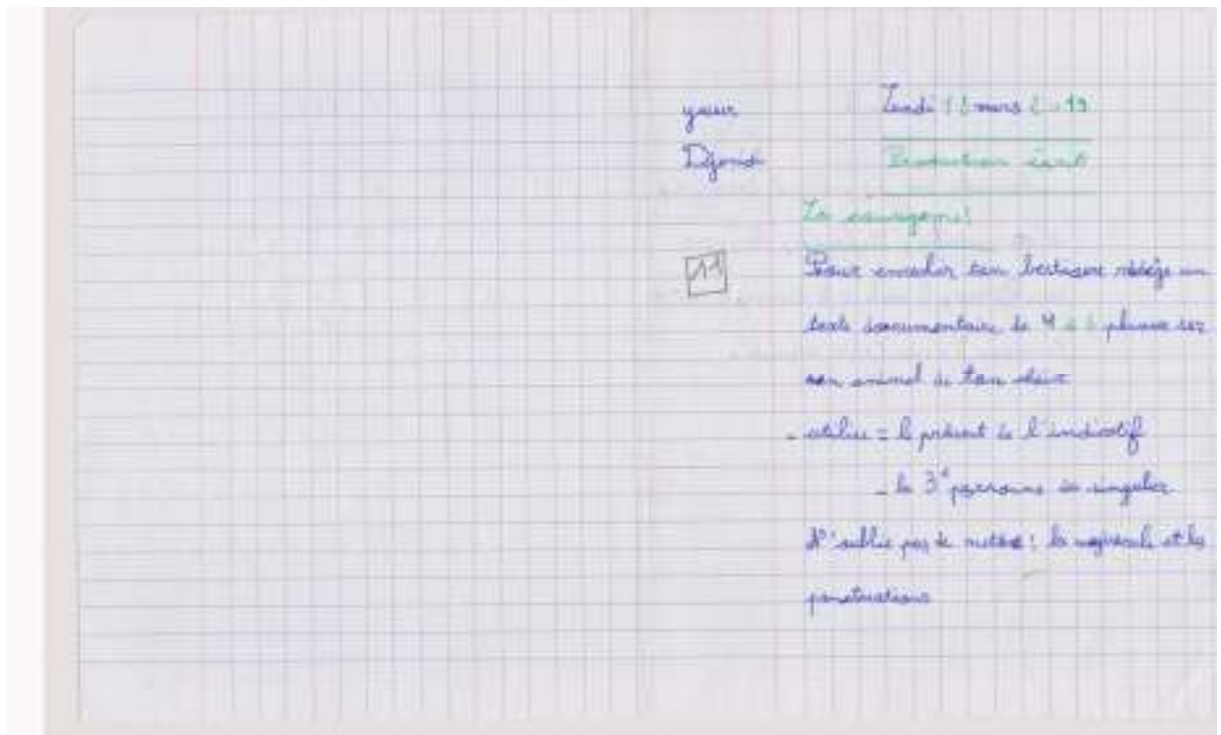 Lundi mars 19
Production écrit
La consigne :
11
Pour enrichir ton bestiaire rédige un
texte documentaire de 4 à phrase sur
son animal de ton choix
- utilise = le présent de l'indicatif
- la 3e personne du singulier
N'oublie pas de mettre : la majuscule et les
ponctuations